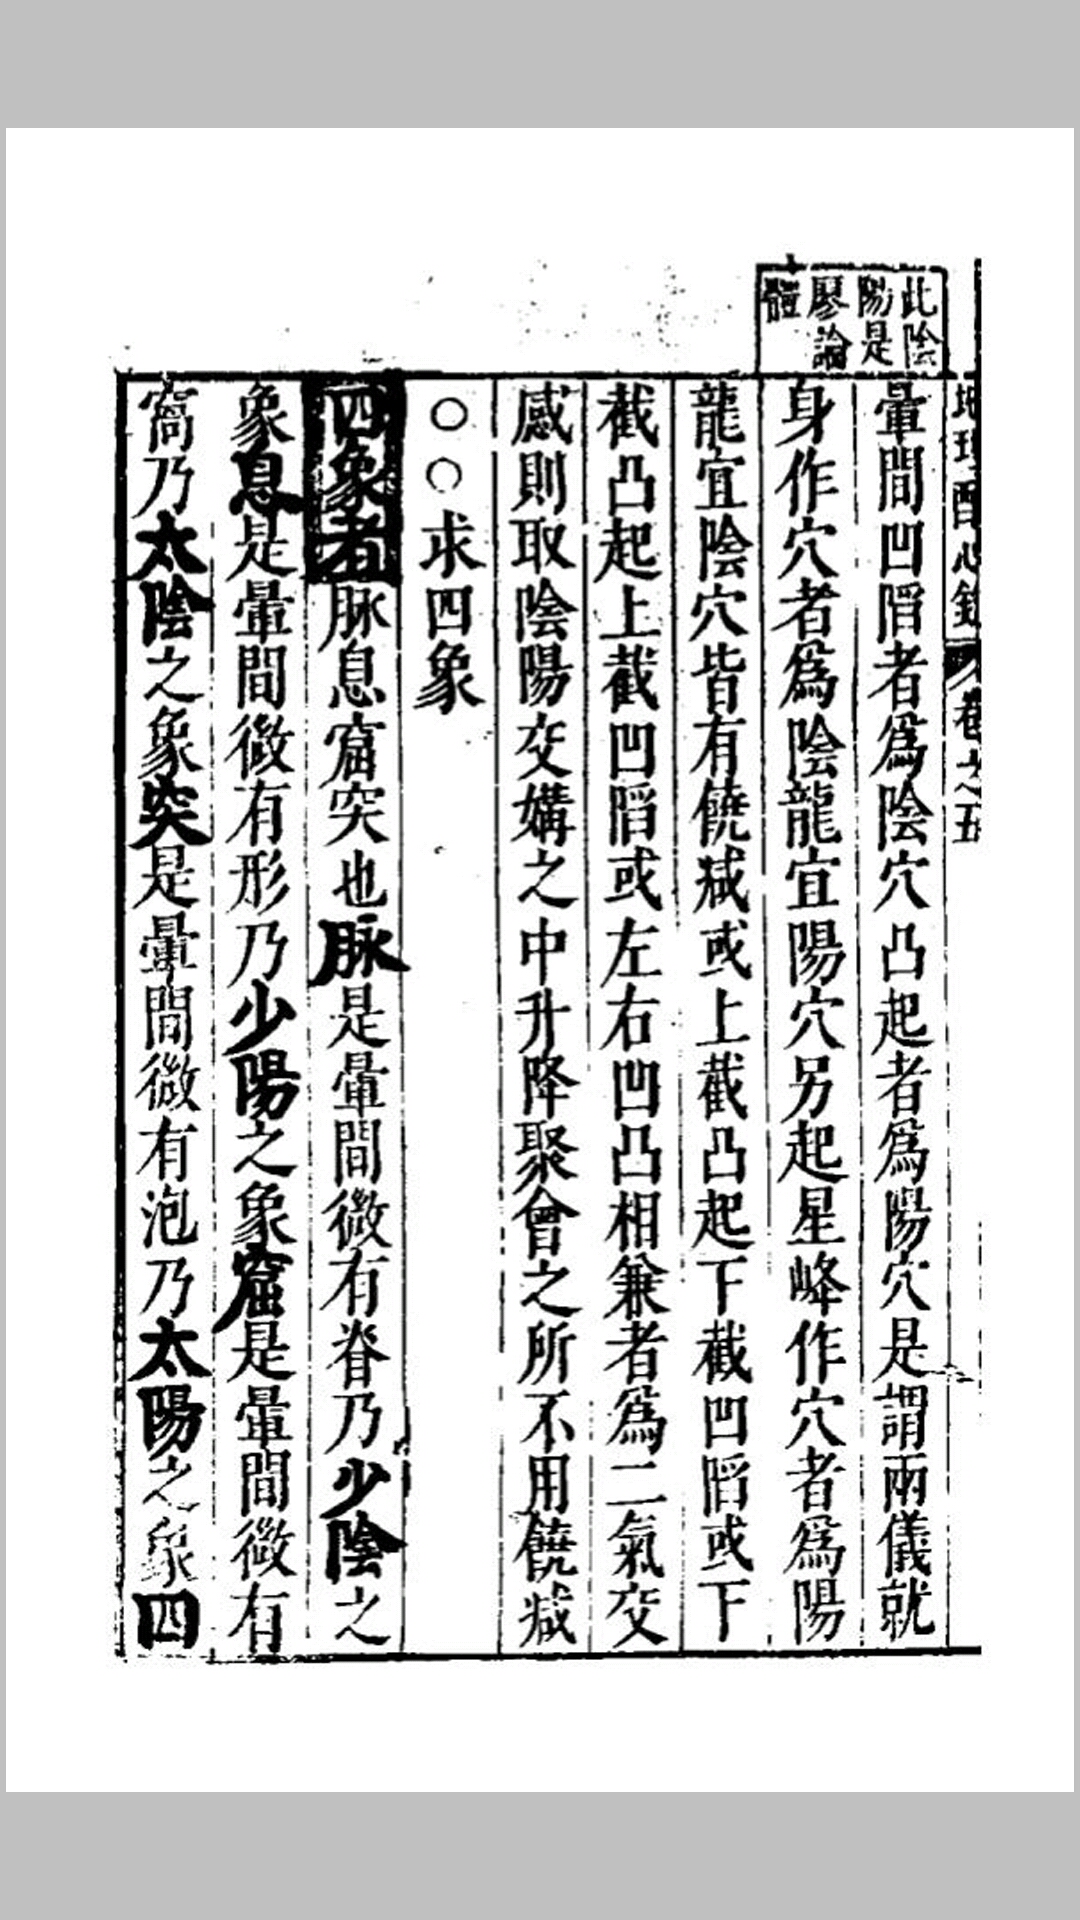 地理酉心錄 卷之五
此陰
陽是
廖論
體
暈間凹䧟者爲陰穴凸起者爲陽穴是謂兩儀就
身作穴者爲陰龍宜陽穴另起星峰作穴者爲陽
龍宜陰穴皆有饒減或上截凸起下截凹䧟或下
截凸起上截凹䧟或左右凹凸相兼者爲二氣交
感則取陰陽交媾之中升降聚會之所不用饒减
○○求四象
四象者脉息窟突也脉是暈間微有脊乃少陰之
象息是暈間微有形乃少陽之象窟是暈間微有
窩乃太陰之象突是暈間微有泡乃太陽之象四